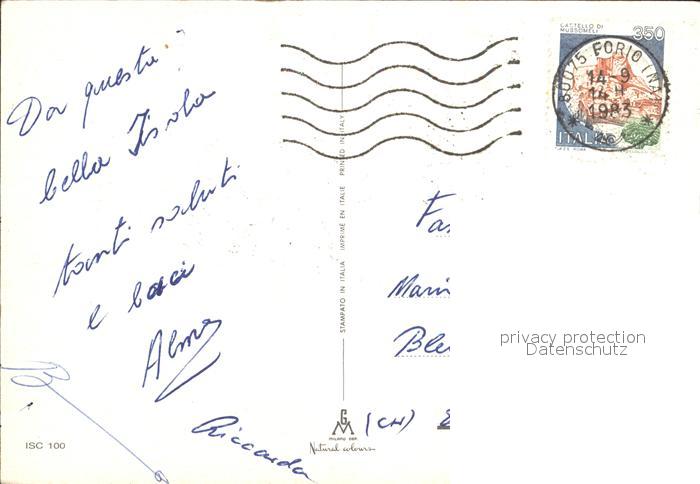 Da questa
bella Isola
tanti saluti
e baci
Alma
Riccarda
ISC 100
STAMPATO IN ITALIA IMPRIMÉ EN ITALIE PRINTED IN ITALY
G
M
MILANO DEP.
Natural colours
CASTELLO DI
MUSSOMELI 350
80075 FORIO (NA)
14-9
14 H
1983
ITALIA
Fas
Mari
Ble
(CH)
privacy protection
Datenschutz